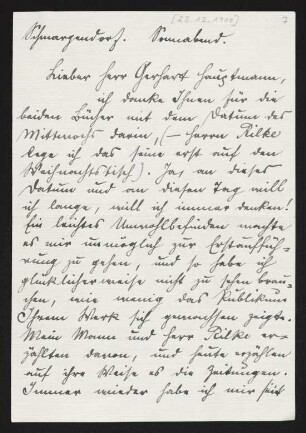 [22.12.1900]
7
Schmargendorf. Sonnabend.
Lieber Herr Gerhart Hauptmann,
ich danke Ihnen für die
beiden Bücher mit dem Datum des
Mittwochs darin, (– Herrn Rilke
lege ich das seine erst auf den
Weihnachtstisch). Ja, an dieses
Datum und an diesen Tag will
ich lange, will ich immer denken!
Ein leichtes Unwohlbefinden machte
es mir unmöglich zur Erstauffüh-
rung zu gehen, und so habe ich
glücklicherweise nicht zu sehn brau-
chen, wie wenig das Publikum
Ihrem Werk sich gewachsen zeigte.
Mein Mann und Herr Rilke er-
zählten davon, und heute erzählen
auf ihre Weise es die Zeitungen.
Immer wieder habe ich mir seit